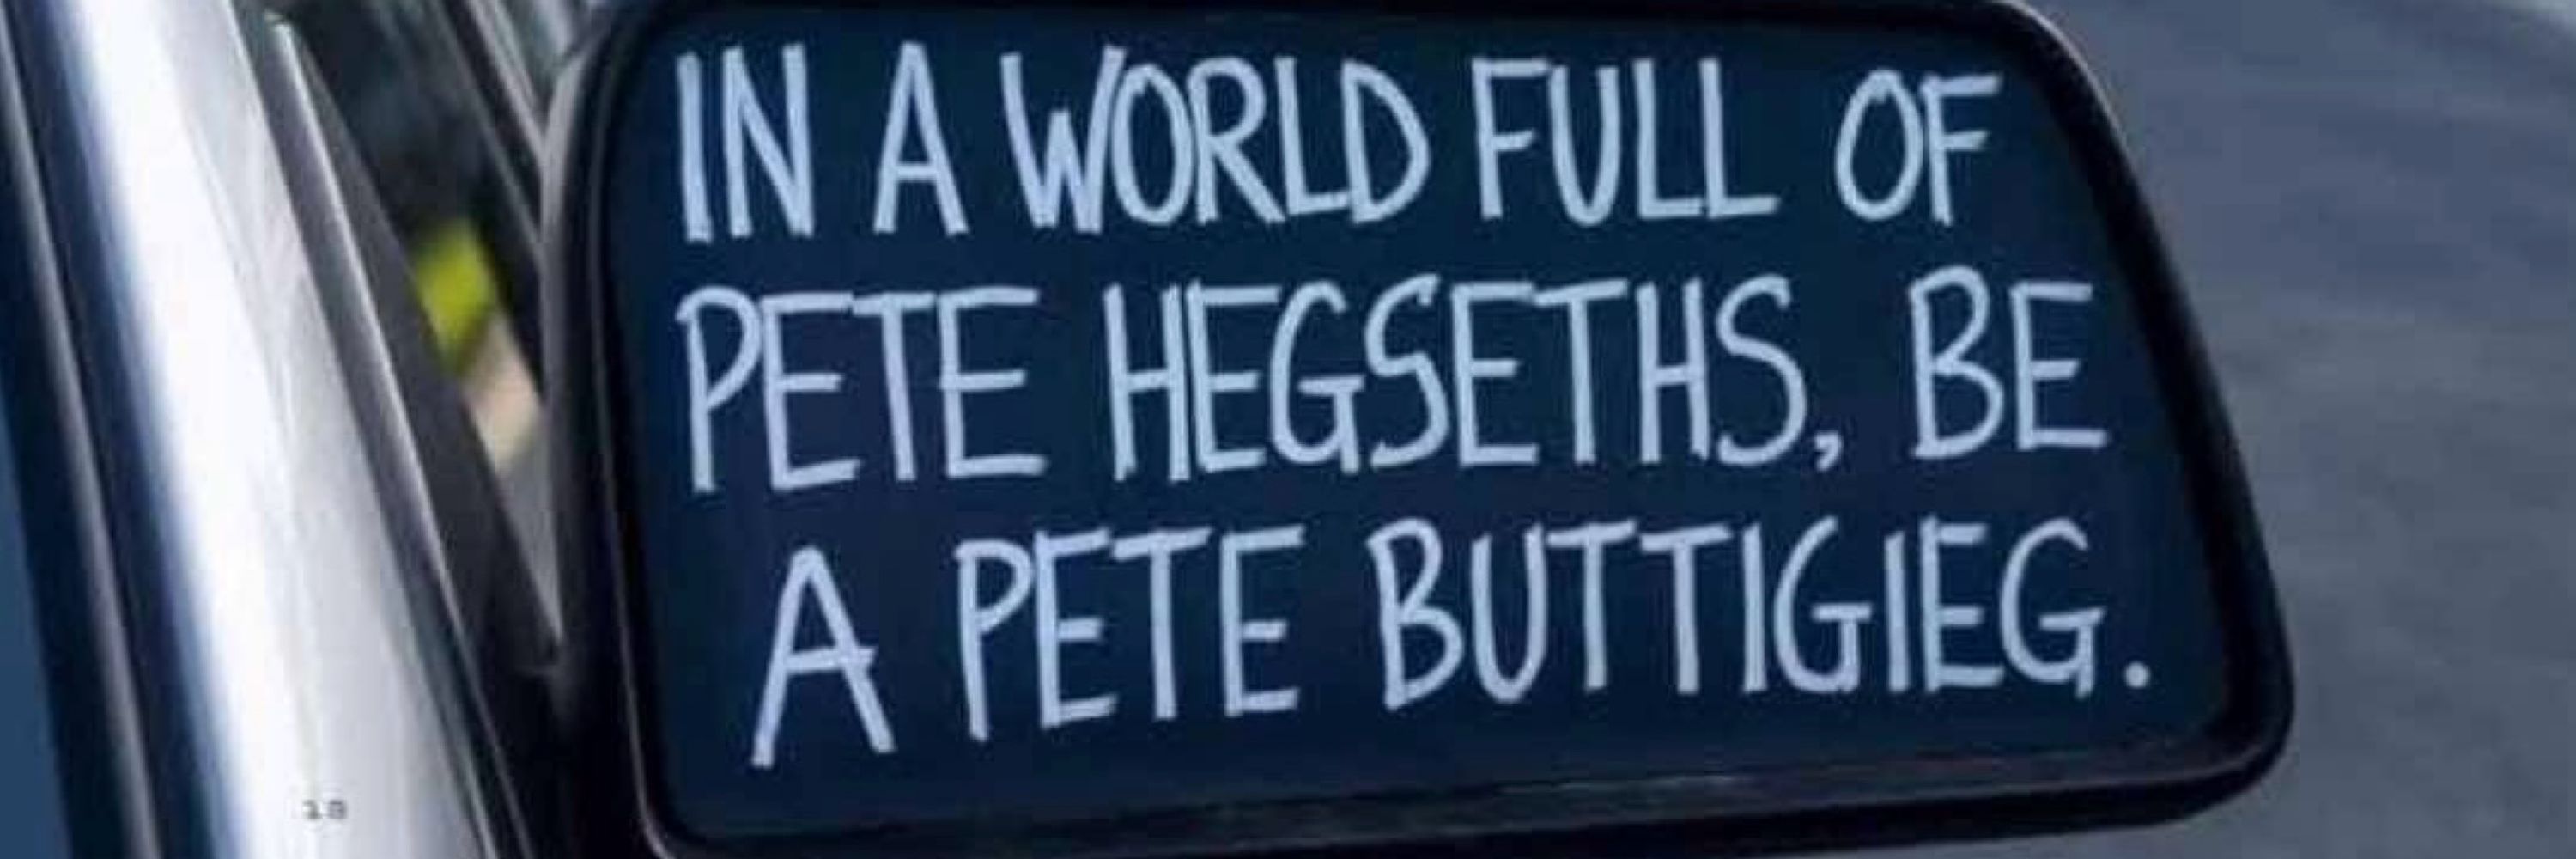 IN A WORLD FULL OF
PETE HEGSETHS, BE
A PETE BUTTIGIEG.